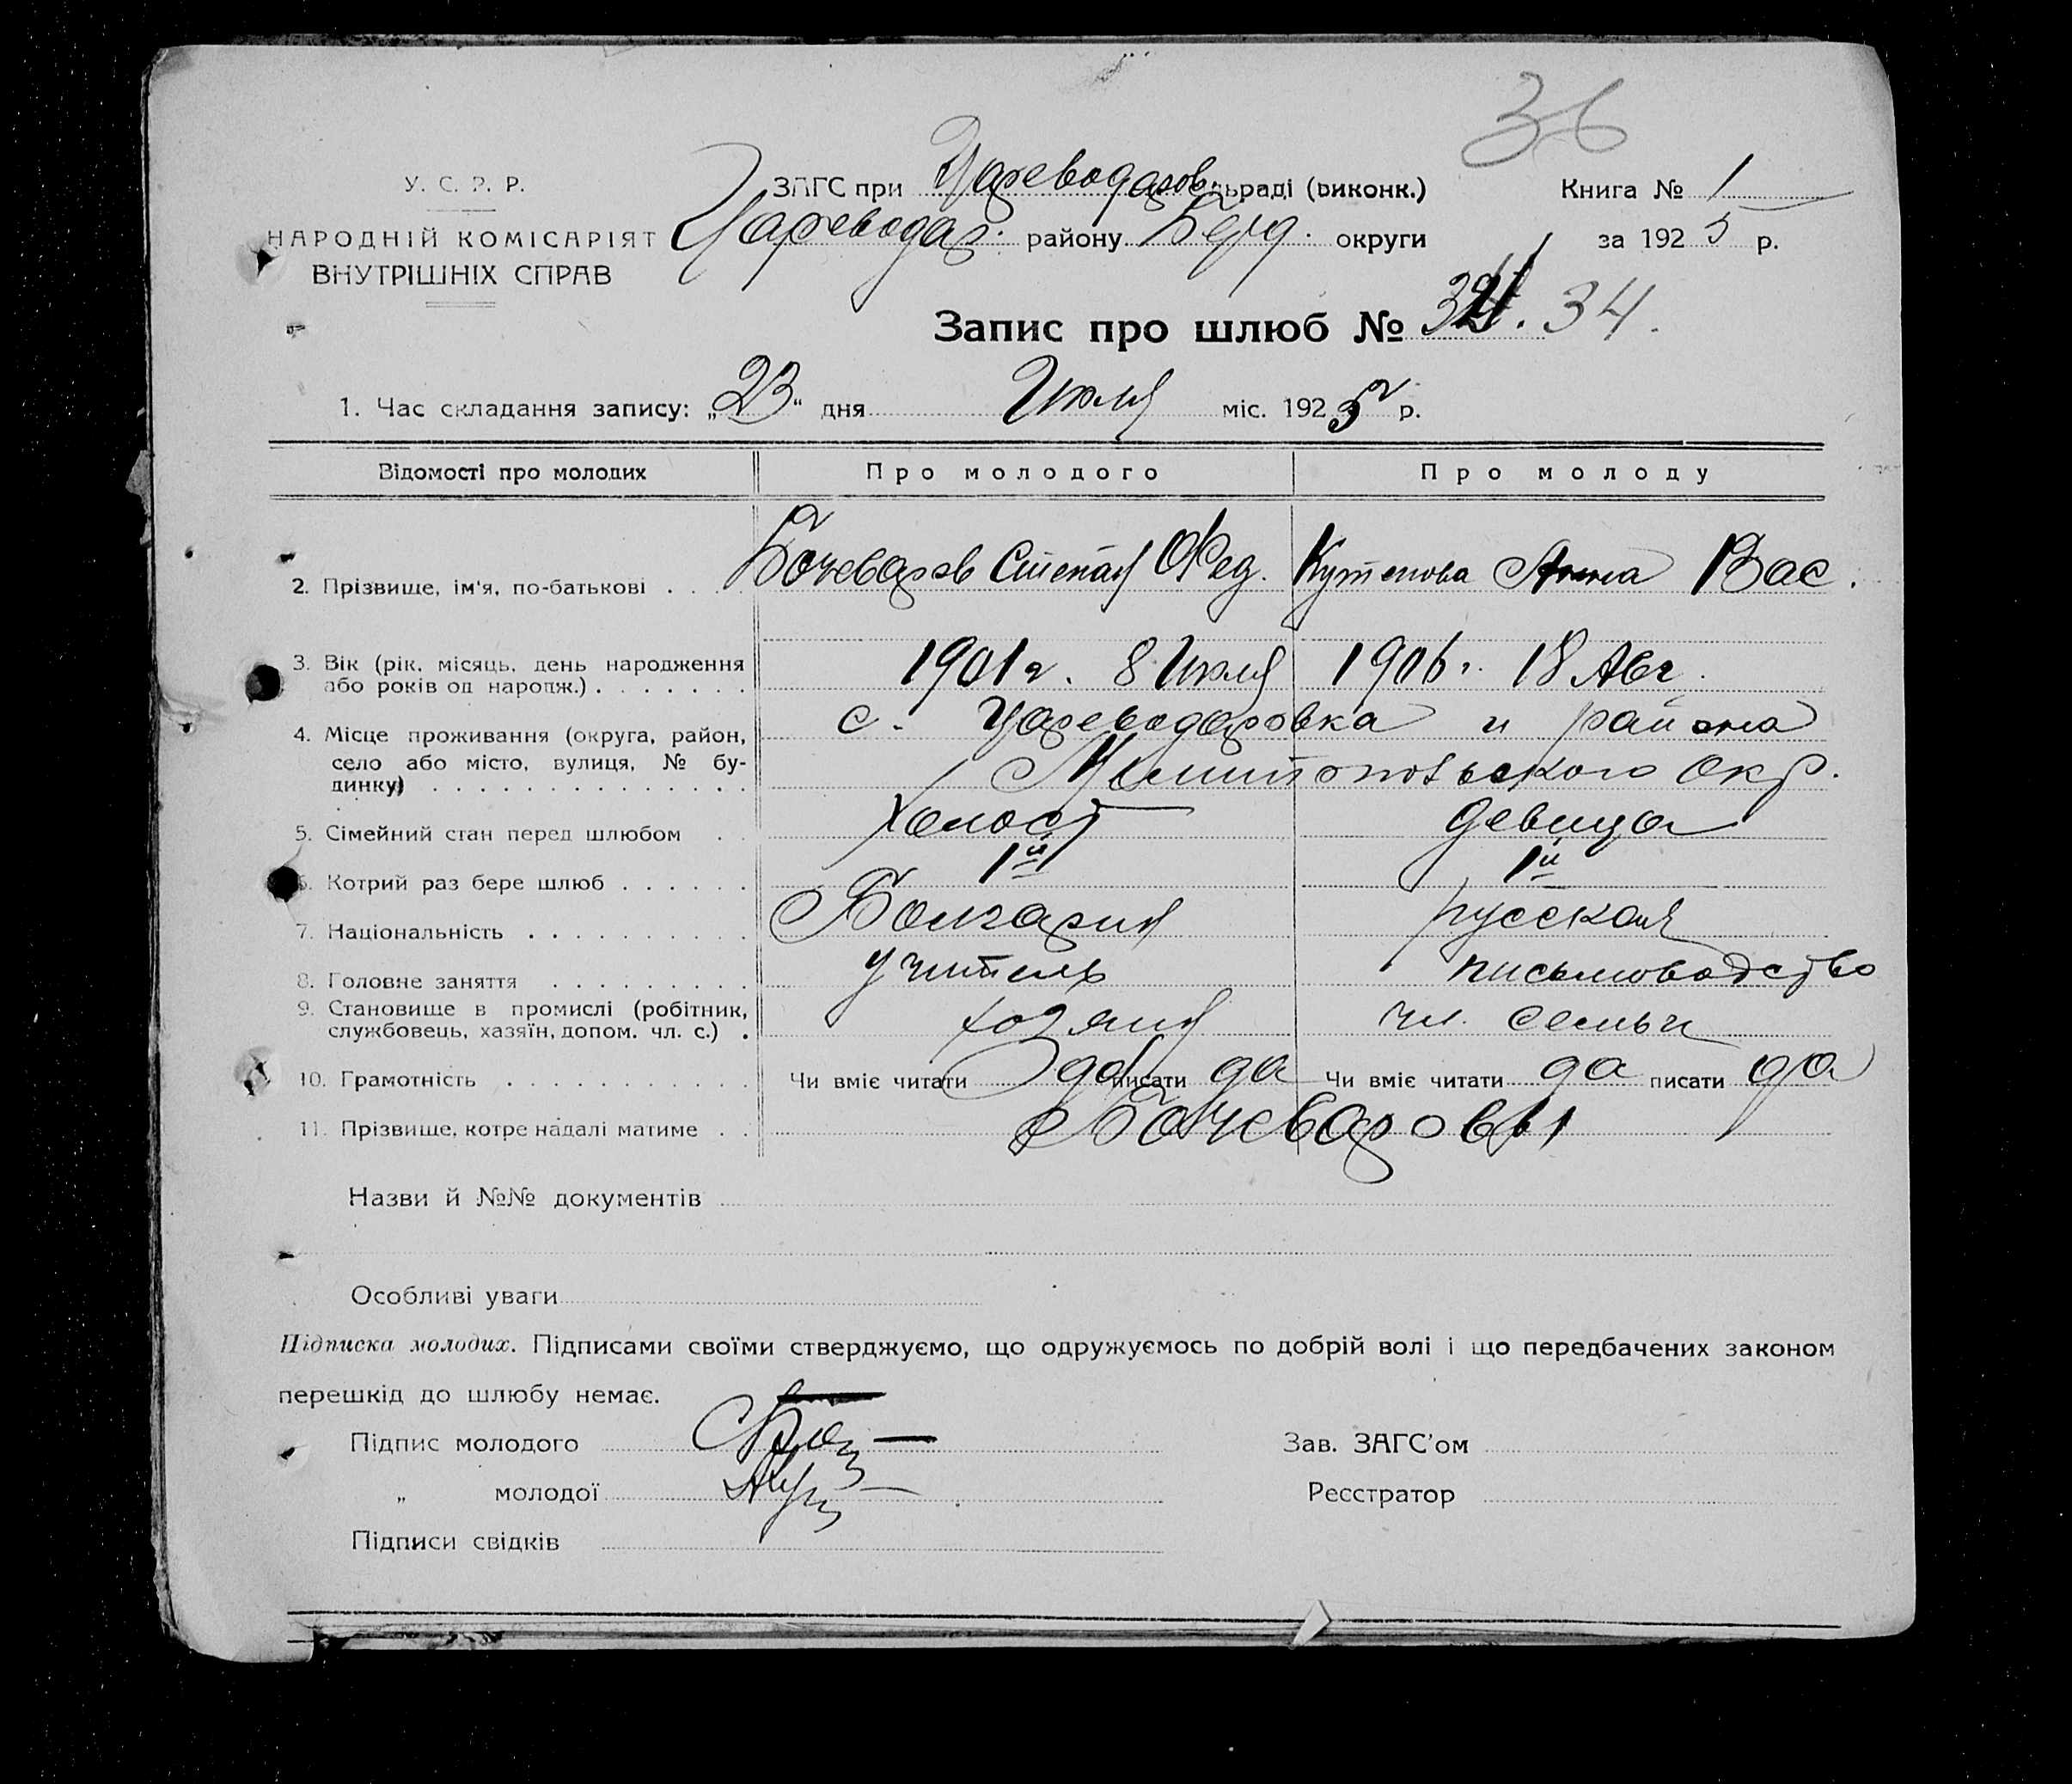 36
У. С. Р. Р.
НАРОДНІЙ КОМІСАРІЯТ
ВНУТРІШНІХ СПРАВ
ЗАГС при Цареводаров. ьраді (виконк.)
Цареводар. району Берд. округи
Книга № 1
за 1925 р.
Запис про шлюб № 34.
1. Час складання запису: „23“ дня Июля міс. 1925 р.
Відомості про молодих Про молодого Про молоду
2. Прізвище, ім'я, по-батькові . . . . Бочеваров Степан Фед. Кутепова Анна Вас.
3. Вік (рік, місяць, день народження 1901 г. 8 Июля 1906 г. 18 Авг.
або років од народж.) . . . . . . .
4. Місце проживання (округа, район, с. Цареводаровка и района
село або місто, вулиця, № бу- Мелитопольского Окр.
динку) . . . . . . . . . . . . . .
5. Сімейний стан перед шлюбом . . холост девица
6. Котрий раз бере шлюб . . . . . . 1й 1й
7. Національність . . . . . . . . . . Болгарин русская
8. Головне заняття . . . . . . . . . учитель письмоводство
9. Становище в промислі (робітник, хозяин чл. семьи
службовець, хазяїн, допом. чл. с.) .
10. Грамотність . . . . . . . . . . . Чи вміє читати да писати да Чи вміє читати да писати да
11. Прізвище, котре надалі матиме . . Бочеваровы
Назви й №№ документів
Особливі уваги
Підписка молодих. Підписами своїми стверджуємо, що одружуємось по добрій волі і що передбачених законом
перешкід до шлюбу немає.
Підпис молодого Зав. ЗАГС'ом
„ молодої Реєстратор
Підписи свідків